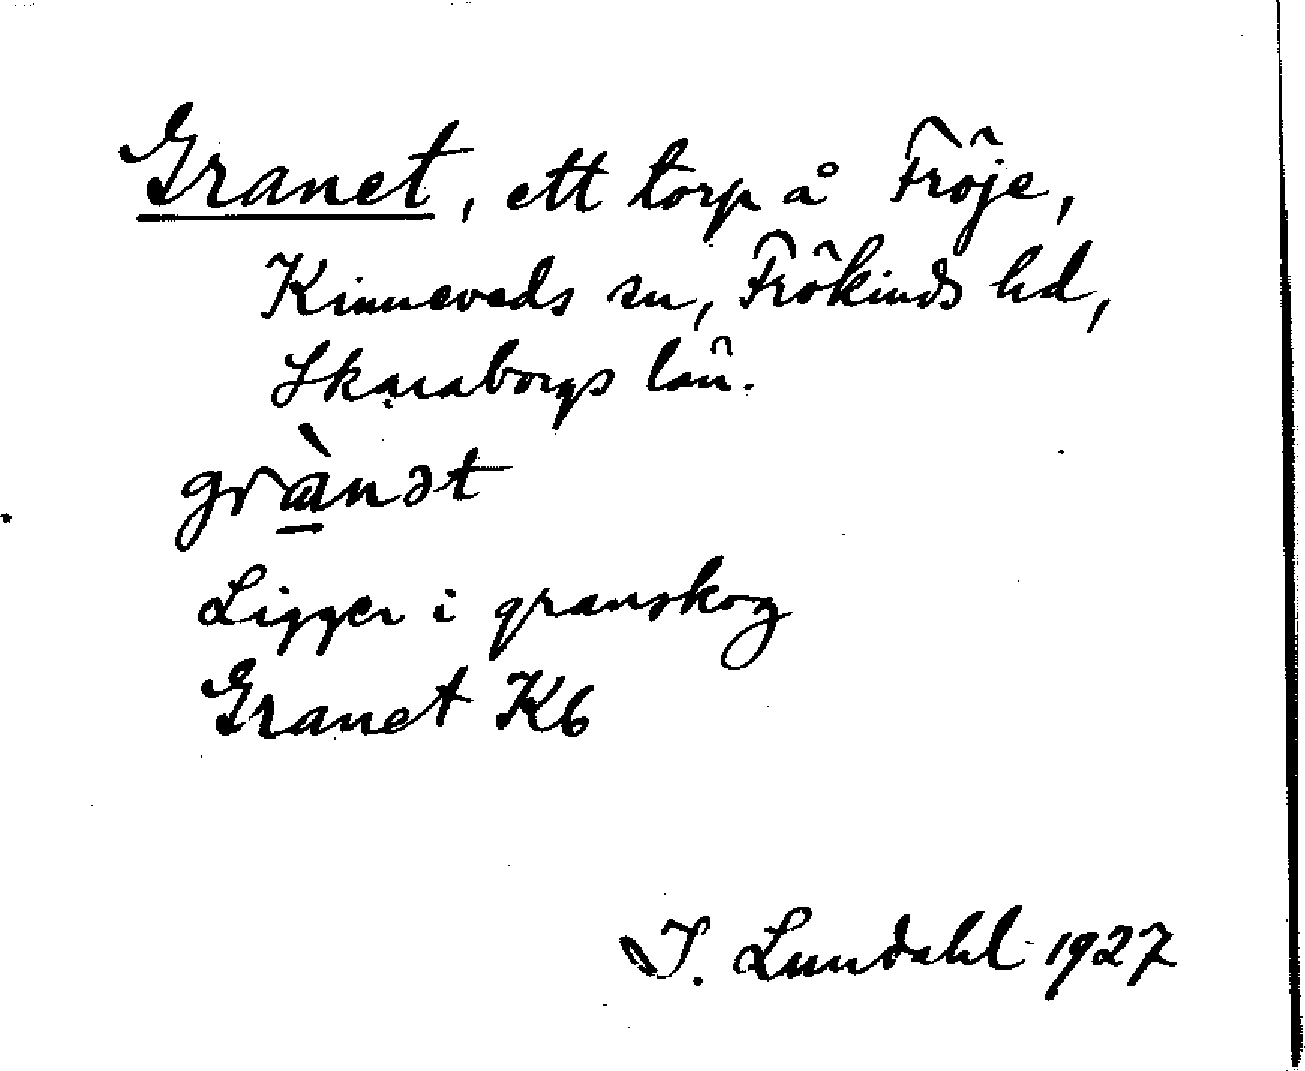 Granet, ett torp å Fröje,
Kinneveds sn, Frökinds hd,
Skaraborgs län.
grànət
Ligger i granskog
Granet K6
I. Lundahl 1927